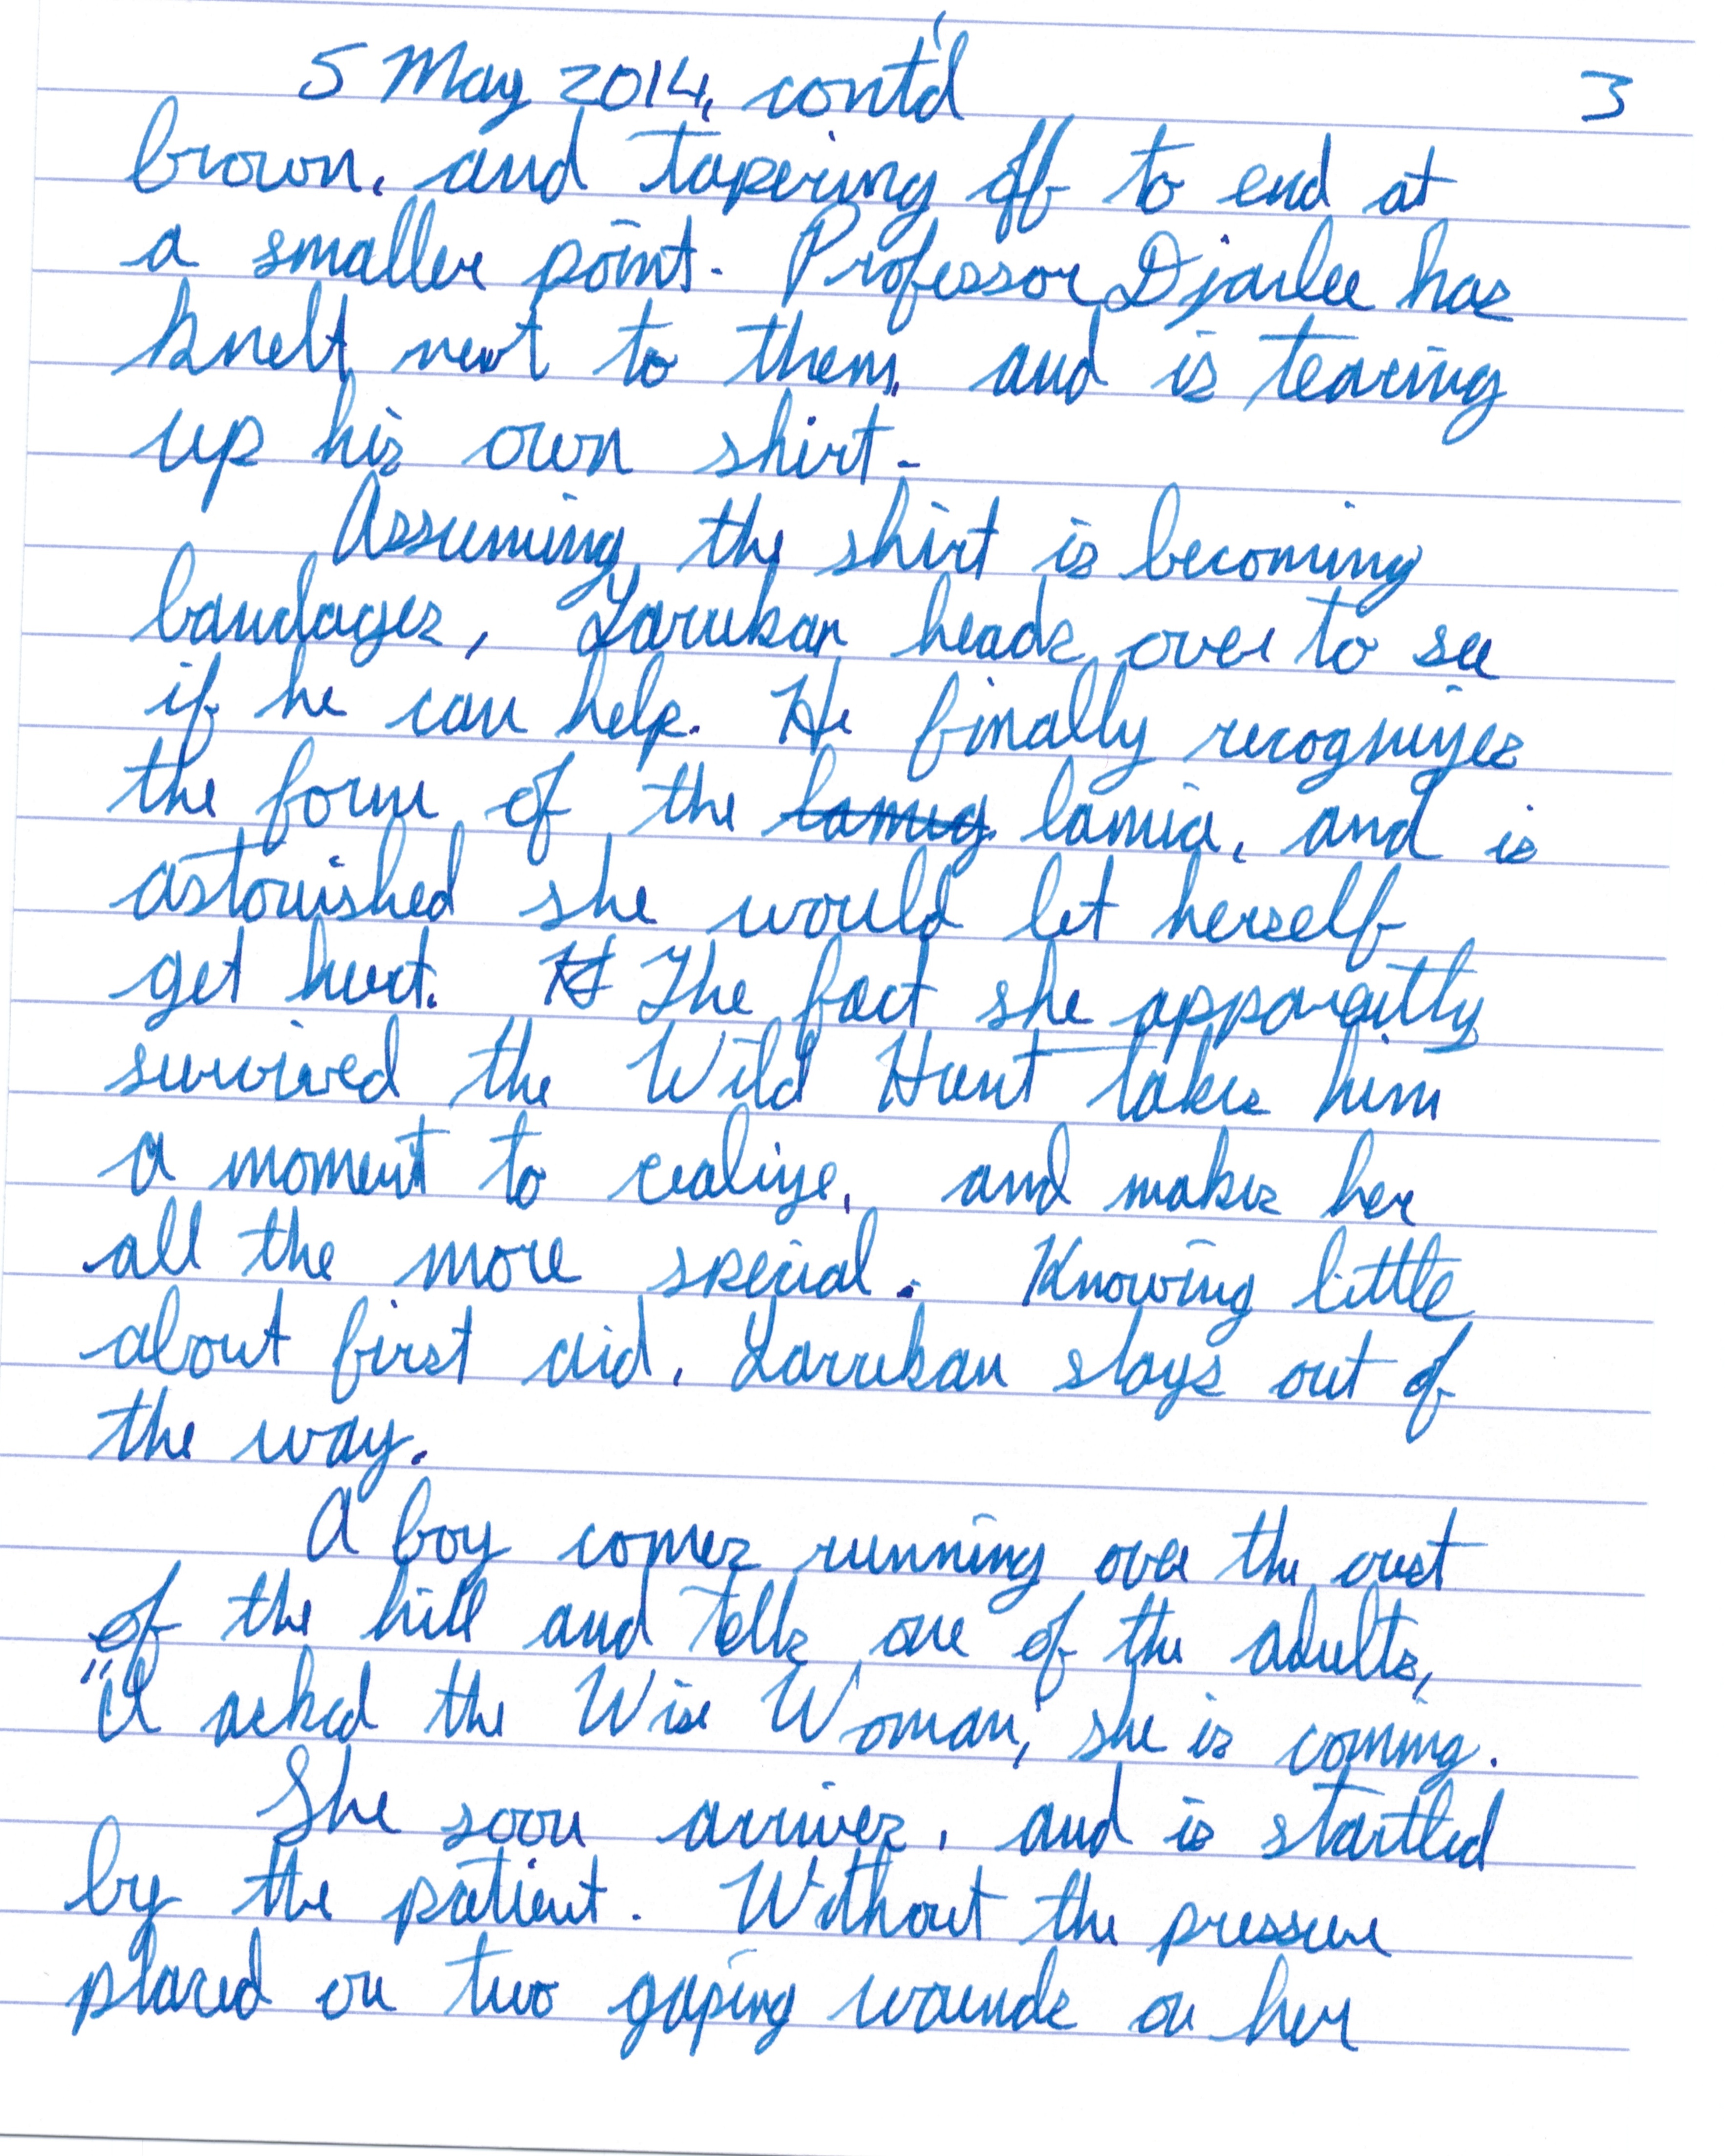 5 May 2014, cont'd 3
brown, and tapering off to end at
a smaller point. Professor Djarlee has
knelt next to them, and is tearing
up his own shirt.
Assuming the shirt is becoming
bandages, Yarrukan heads over to see
if he can help. He finally recognizes
the form of the lamia, and is
astonished she would let herself
get hurt. The fact she apparently
survived the Wild Hunt takes him
a moment to realize, and makes her
all the more special. Knowing little
about first aid, Yarrukan stays out of
the way.
A boy comes running over the crest
of the hill and tells one of the adults,
"I asked the Wise Woman, she is coming.
She soon arrives, and is startled
by the patient. Without the pressure
placed on two gaping wounds on her